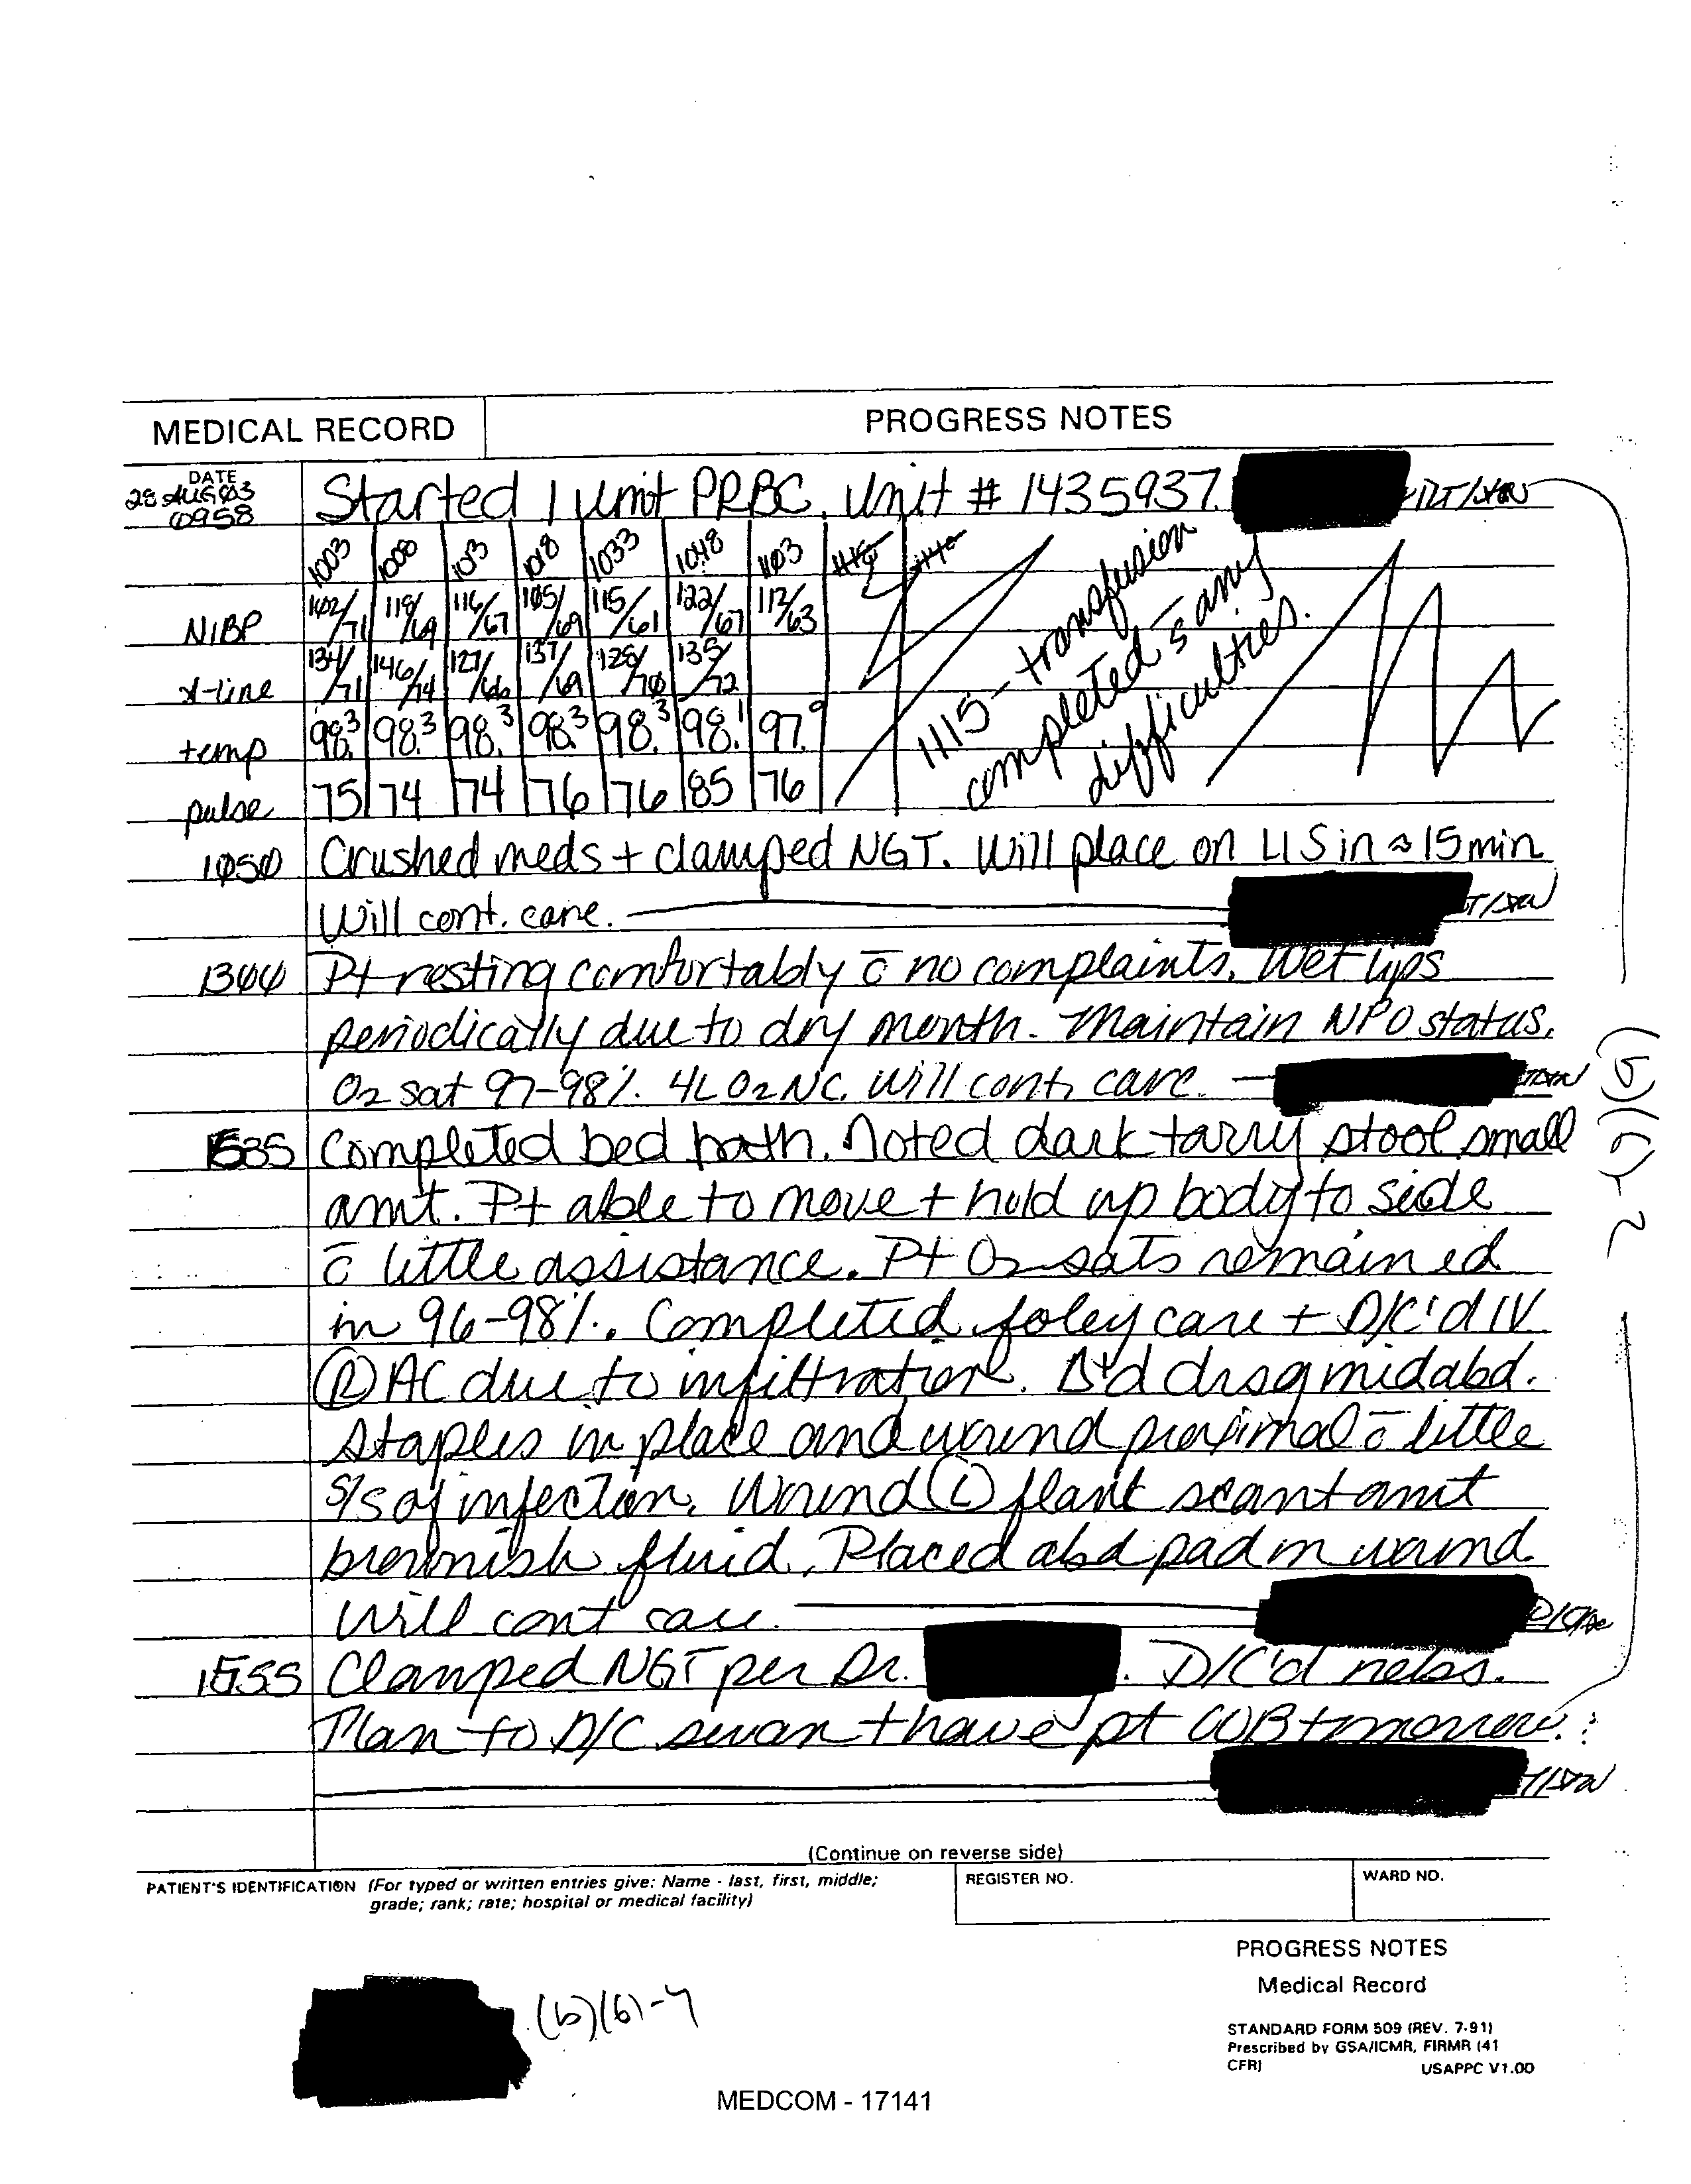 MEDICAL RECORD
PROGRESS NOTES
DATE
28 AUG 03
0958
Started 1 unit PRBC. Unit # 1435937.
1003 1008 1013 1018 1033 1048 1103
NIBP 102/71 119/69 116/67 105/69 115/61 122/67 113/63
A-line 134/71 146/74 127/66 137/69 128/70 135/72
temp 98.3 98.3 98.3 98.3 98.3 98.1 97.9
pulse 75 74 74 76 76 85 76
1115 - transfusion
completed s̄ any
difficulties.
1050 Crushed meds + clamped NGT. Will place on LIS in ≈ 15 min
Will cont. care.
1300 Pt resting comfortably c̄ no complaints. Wet lips
periodically due to dry mouth. Maintain NPO status.
O2 sat 97-98%. 4L O2 NC. Will cont. care.
1535 Completed bed bath. Noted dark tarry stool small
amt. Pt able to move + hold up body to side
c̄ little assistance. Pt O2 sats remained
in 96-98%. Completed foley care + D/C'd IV
(R) AC due to infiltration. Δ'd drsg midabd.
Staples in place and wound proximal c̄ little
s/s of infection. Wound (L) flank scant amt
brownish fluid. Placed abd pad in wound
Will cont care.
1555 Clamped NGT per Dr. . D/C'd nebs.
Plan to D/C swan + have pt OOB tomorrow.
(b)(6)-2
(Continue on reverse side)
PATIENT'S IDENTIFICATION (For typed or written entries give: Name - last, first, middle;
grade; rank; rate; hospital or medical facility)
REGISTER NO.
WARD NO.
(b)(6)-4
PROGRESS NOTES
Medical Record
STANDARD FORM 509 (REV. 7-91)
Prescribed by GSA/ICMR, FIRMR (41
CFR)
USAPPC V1.00
MEDCOM - 17141